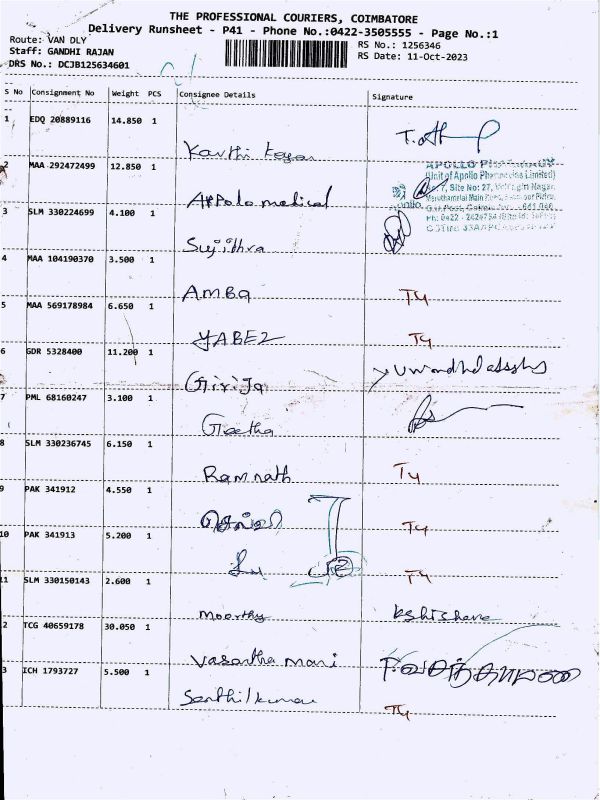 THE PROFESSIONAL COURIERS, COIMBATORE
Delivery Runsheet - P41 - Phone No.:0422-3505555 - Page No.:1
Route: VAN DLY
Staff: GANDHI RAJAN
DRS No.: DCJB125634601
RS No.: 1256346
RS Date: 11-Oct-2023
S No Consignment No Weight PCS Consignee Details Signature
1 EDQ 20889116 14.850 1
2 MAA 292472499 12.850 1 Appolo medical
APOLLO PHARMACY
(Unit of Apollo Pharmacies Limited)
3 SLM 330224699 4.100 1 Sujithra
4 MAA 104190370 3.500 1 AMBA T4
5 MAA 569178984 6.650 1 YABEZ T4
6 GDR 5328400 11.200 1 Girija
7 PML 68160247 3.100 1 Geetha
8 SLM 330236745 6.150 1 Ramnath T4
9 PAK 341912 4.550 1 செல்வி T4
10 PAK 341913 5.200 1 T4
11 SLM 330150143 2.600 1 moorthy
2 TCG 40659178 30.050 1 Vasantha mani
3 ICH 1793727 5.500 1 Senthilkumar T4